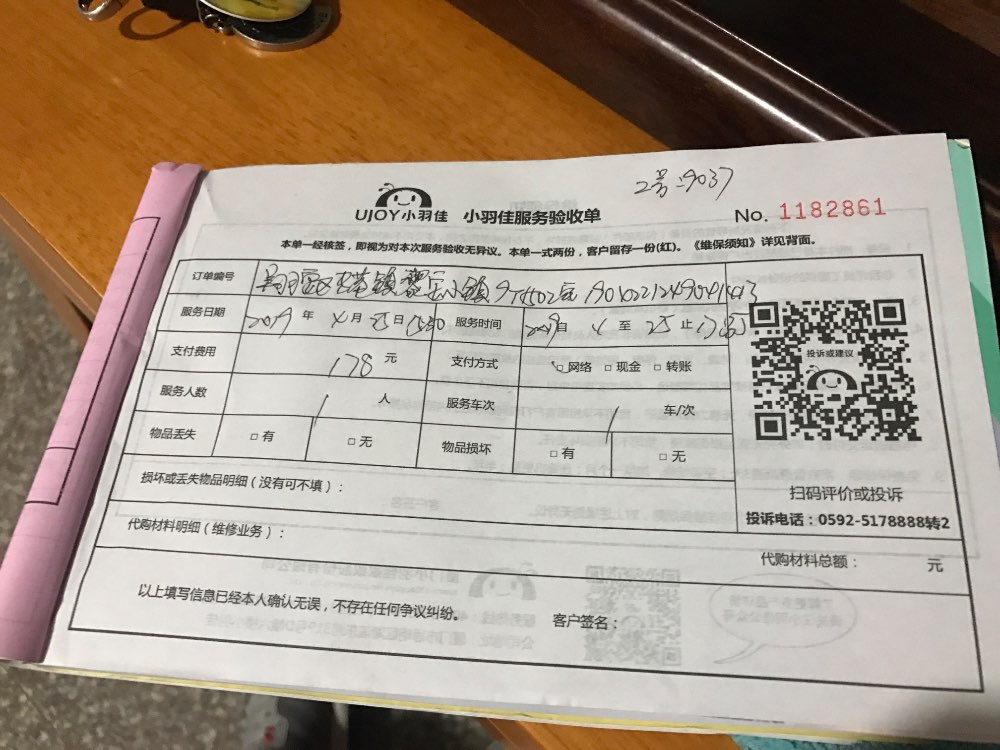 2号:9037
UJOY小羽佳 小羽佳服务验收单 No. 1182861
本单一经核签，即视为对本次服务验收无异议。本单一式两份，客户留存一份(红)。《维保须知》详见背面。
订单编号
服务日期 2019 年 4 月 25 日 服务时间 2019 自 4 至 25 止
支付费用 178 元 支付方式 □ 网络 □ 现金 □ 转账
服务人数 1 人 服务车次 1 车/次
物品丢失 □ 有 □ 无 物品损坏 □ 有 □ 无
投诉或建议
扫码评价或投诉
投诉电话：0592-5178888转2
损坏或丢失物品明细（没有可不填）：
代购材料明细（维修业务）： 代购材料总额： 元
以上填写信息已经本人确认无误，不存在任何争议纠纷。 客户签名：